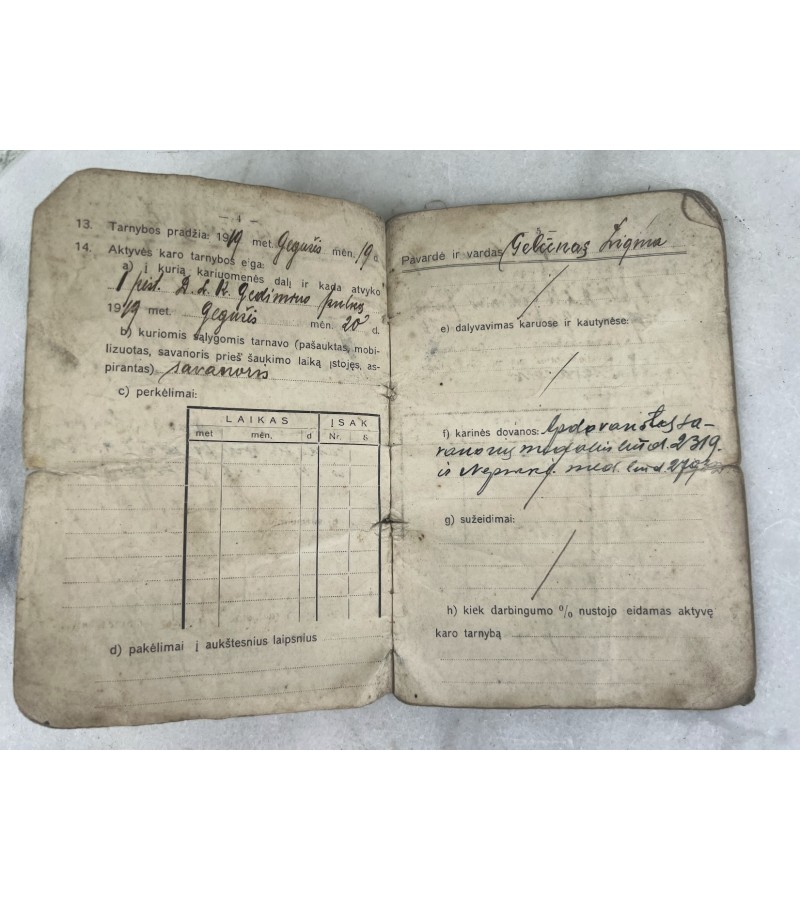 — 4 —
13. Tarnybos pradžia: 1919 met. Gegužis mėn. 19 d.
14. Aktyvės karo tarnybos eiga:
a) į kurią kariuomenės dalį ir kada atvyko
1 pėst. D. L. K. Gedimino pulką
1919 met. Gegužis mėn. 20 d.
b) kuriomis sąlygomis tarnavo (pašauktas, mobi-
lizuotas, savanoris prieš šaukimo laiką įstojęs, as-
pirantas) savanoris
c) perkėlimai:
LAIKAS ĮSAK
met mėn. d Nr. §
d) pakėlimai į aukštesnius laipsnius
Pavardė ir vardas Geliūnas Zigma
e) dalyvavimas karuose ir kautynėse:
f) karinės dovanos: Apdovanotas sa-
vanorių medalis liūd. 2319.
ir Neprikl. med. liūd.
g) sužeidimai:
h) kiek darbingumo % nustojo eidamas aktyvę
karo tarnybą